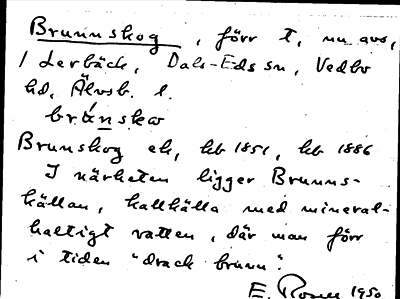 Brunnskog, förr t, nu avs,
/ Lerbäck, Dals-Eds sn, Vedbo
hd, Älvsb. l.
brúnskω
Brunskog ek, hb 1851, hb 1886
I närheten ligger Brunns-
källan, kallkälla med mineral-
haltigt vatten, där man förr
i tiden "drack brunn".
E. Rosell 1950